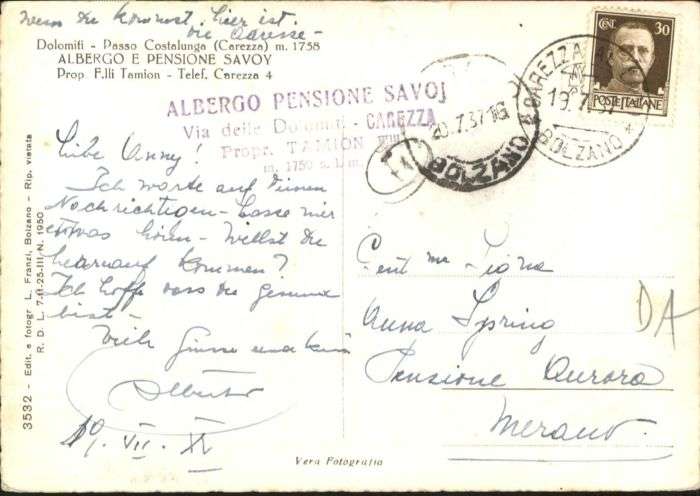 Wenn du kommst, hier ist
die Adresse -
Dolomiti - Passo Costalunga (Carezza) m. 1758
ALBERGO E PENSIONE SAVOY
Prop. F.lli Tamion - Telef. Carezza 4
ALBERGO PENSIONE SAVOJ
Via delle Dolomiti - CAREZZA
Propr. TAMION
m. 1750 s. l. m.
20.7.37 16
BOLZANO
CAREZZA
19.7.37
BOLZANO
CENT. 30
POSTE ITALIANE
Liebe Anny!
Ich warte auf deinen
Nachrichtigen - Lasse mir
etwas hören - Willst du
herauf kommen?
Ich hoffe dass du gesund
bist -
Viele Grüsse und
Alberto
19. VII. XV
Gent ma Sig.na
Anna Spring
Pensione Aurora
Merano.
DA
3532 - Edit. e fotogr. L. Franzl, Bolzano - Rip. vietata
R. D. L. 7-II-25-III-N. 1950
Vera Fotografia